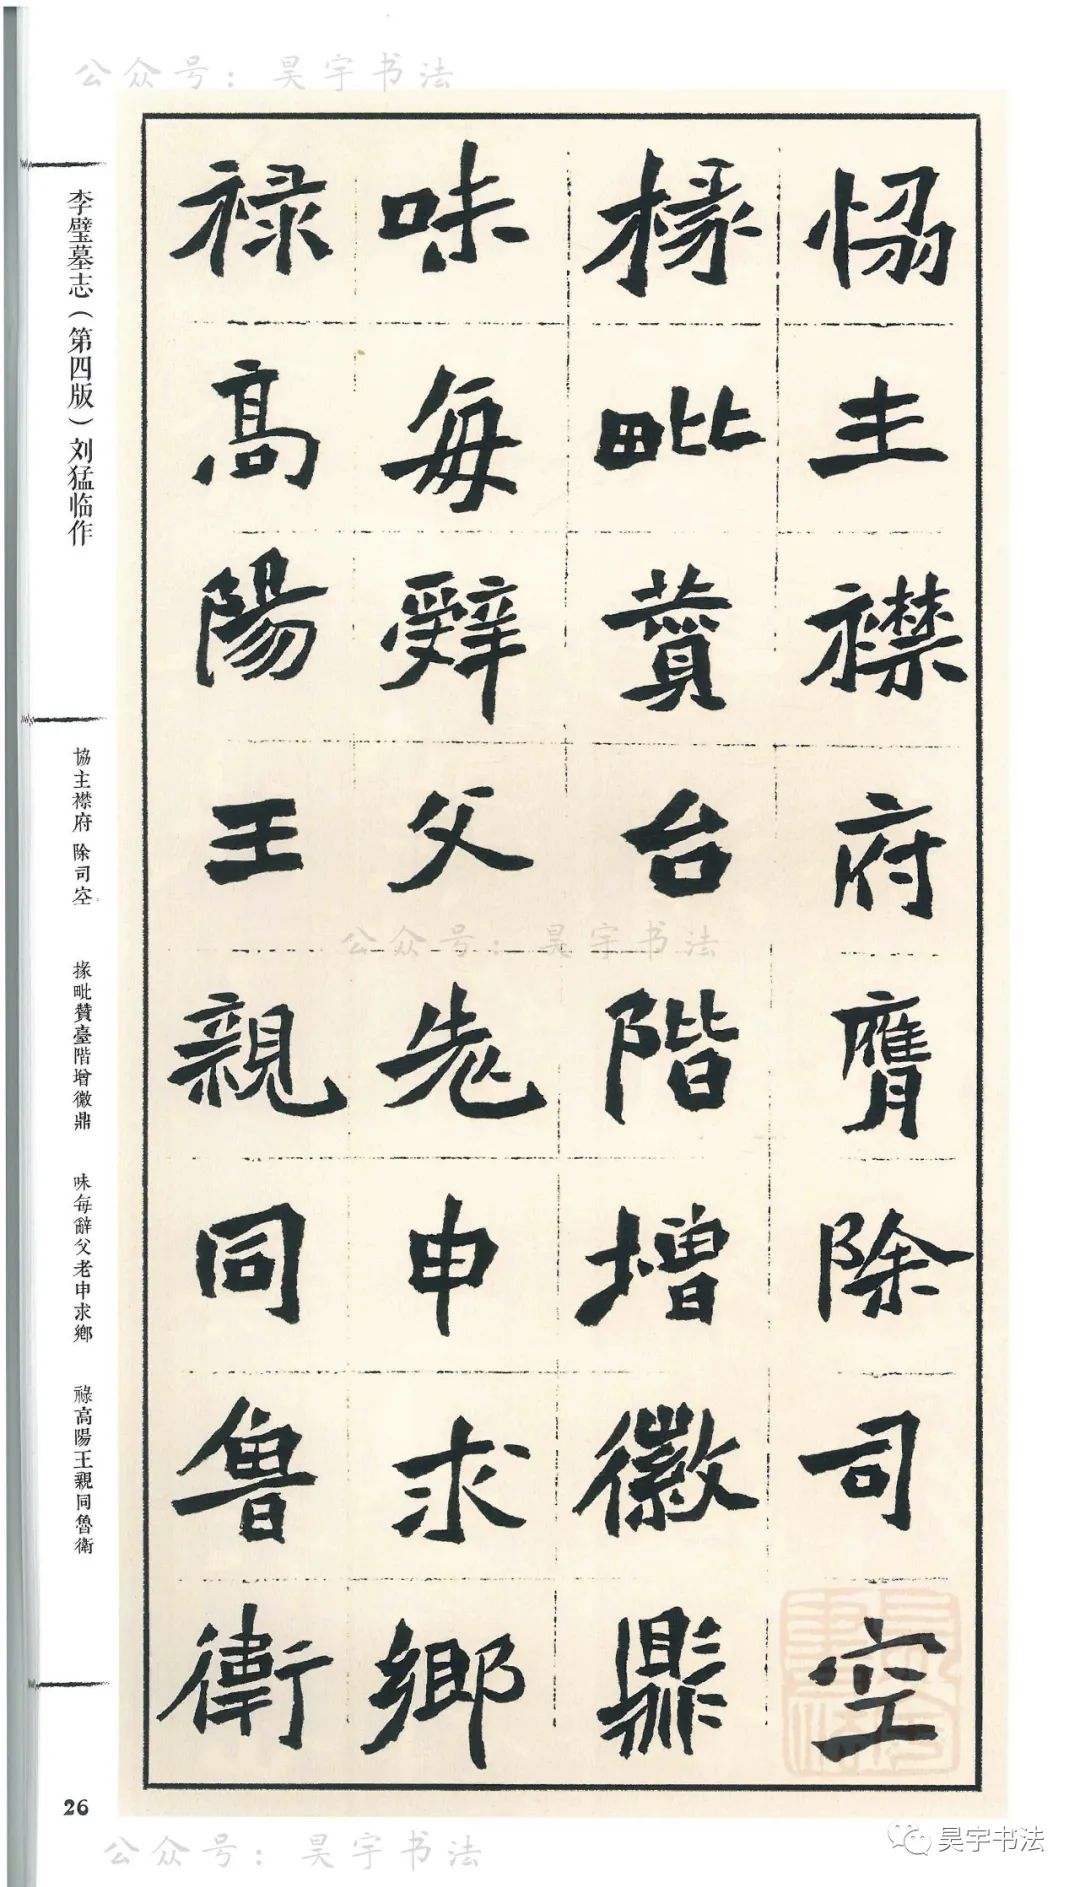 公众号：昊宇书法
恊主襟府膺除司空
掾毗賛台階增徽鼎
味每辤父老申求鄉
禄高陽王親同魯衛
李璧墓志（第四版）刘猛临作
協主襟府 除司空
掾毗贊臺階增徽鼎
味每辭父老申求鄉
祿高陽王親同魯衛
26
公众号：昊宇书法
公众号：昊宇书法
昊宇书法